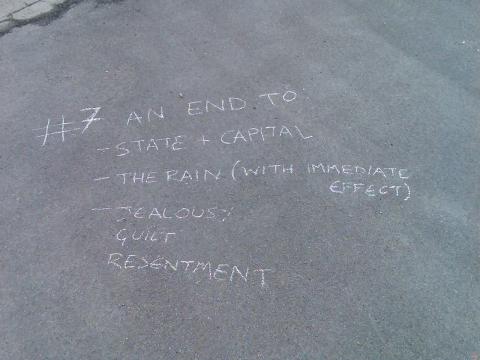 #7 AN END TO
- STATE + CAPITAL
- THE RAIN (WITH IMMEDIATE
EFFECT)
- JEALOUSY
GUILT
RESENTMENT